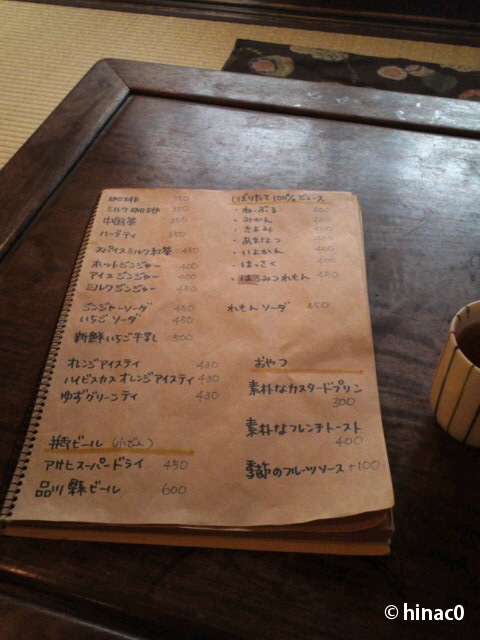 珈琲 350
ミルク珈琲 350
中国茶 350
ハーブティ 350
スパイスミルク紅茶 450
ホットジンジャー 400
アイスジンジャー 400
ミルクジンジャー 450
ジンジャーソーダ 450
いちごソーダ 450
新鮮いちご牛乳 500
オレンジアイスティ 430
ハイビスカスオレンジアイスティ 430
ゆずグリーンティ 430
瓶ビール(小びん)
アサヒスーパードライ 450
品川縣ビール 600
しぼりたて100%ジュース
・ねーぶる 400
・みかん 400
・きよみ 400
・あまなつ 400
・いよかん 400
・はっさく 400
・はちみつれもん 450
れもんソーダ 450
おやつ
素朴なカスタードプリン
300
素朴なフレンチトースト
400
季節のフルーツソース+100
© hinac0